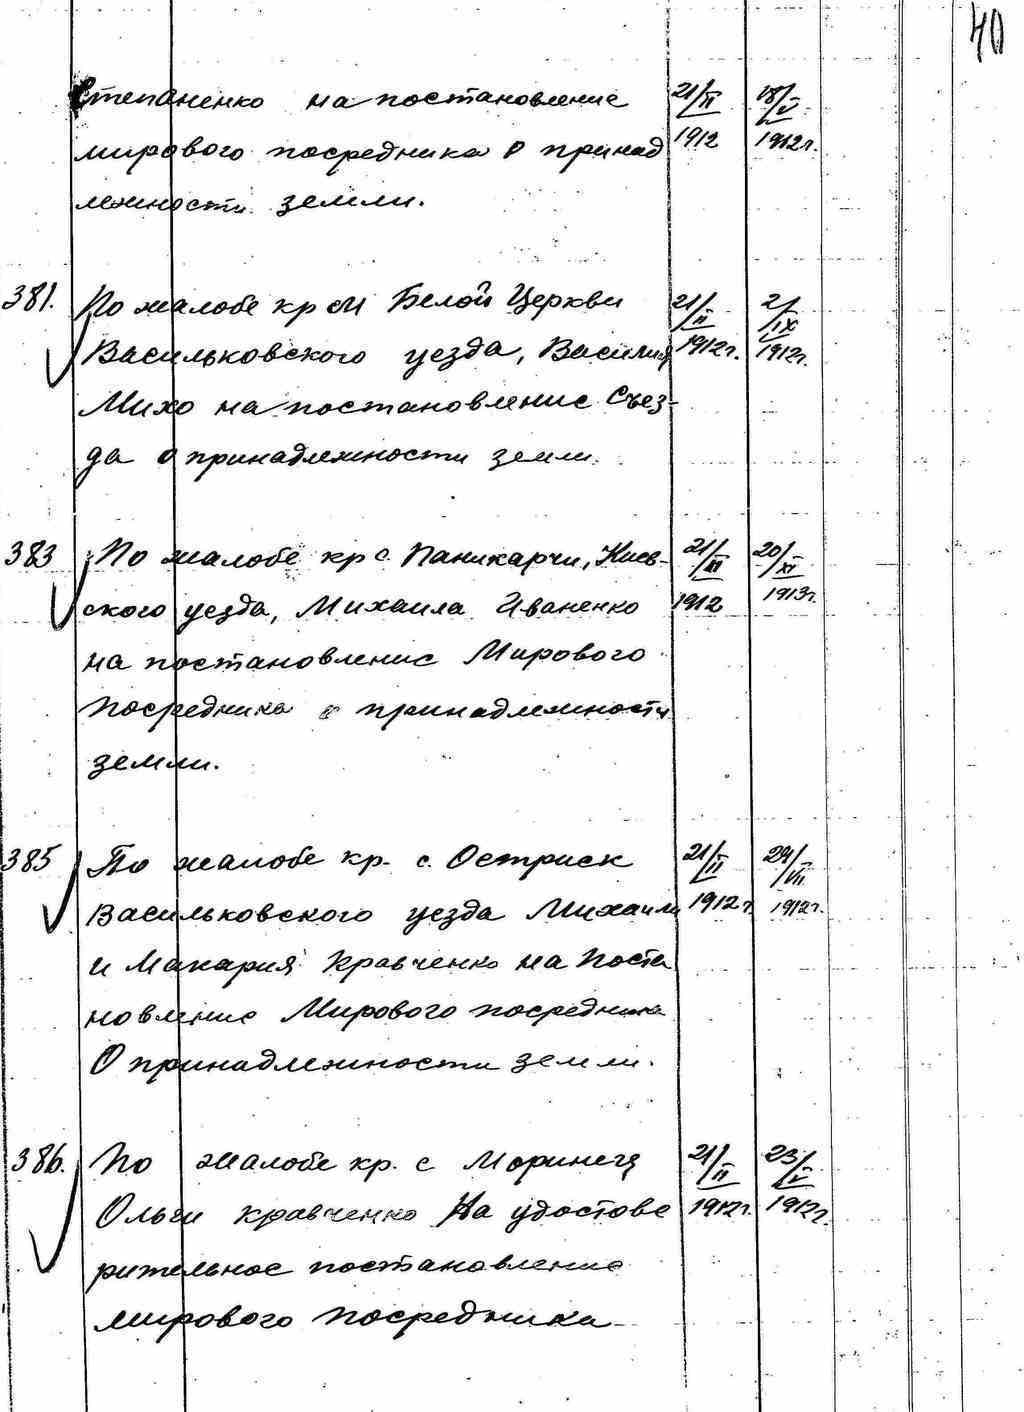 40
Степаненко на постановление 21/II 18/V
мирового посредника о принад 1912 1912г.
лежности земли.
381. По жалобе кр м Белой Церкви 21/II 2/IX
Васильковского уезда, Василия 1912г. 1912г.
Михо на постановление Съез-
да о принадлежности земли.
383 По жалобе кр с. Паникарчи, Киев- 21/III 20/XI
ского уезда, Михаила Иваненко 1912 1913г.
на постановление Мирового
Посредника о принадлежности
земли.
385 По жалобе кр. с. Остриек 21/II 24/VII
Васильковского уезда Михаила 1912г. 1912г.
и Макария Кравченко на Поста
новление Мирового посредника
О принадлежности земли.
386. По жалобе кр. с Моринец 21/II 23/V
Ольги Кравченко На удостове 1912г. 1912г.
рительное постановление
мирового Посредника